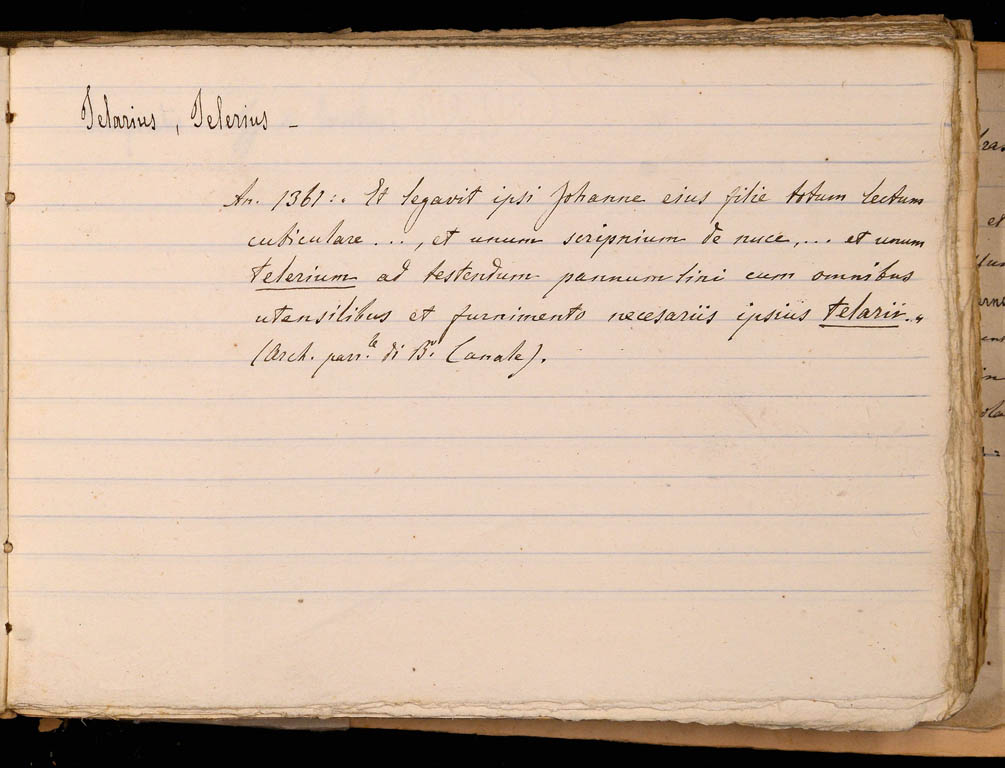 Telarius, Telerius –
An. 1361:. Et legavit ipsi Johanne eius filie totum lectum
cubiculare ..., et unum scripnium de nuce, ... et unum
telerium ad testendum pannum lini cum omnibus
utensilibus et furnimento necesariis ipsius telarii..„
(Arch. parr.le di B.o Canale).